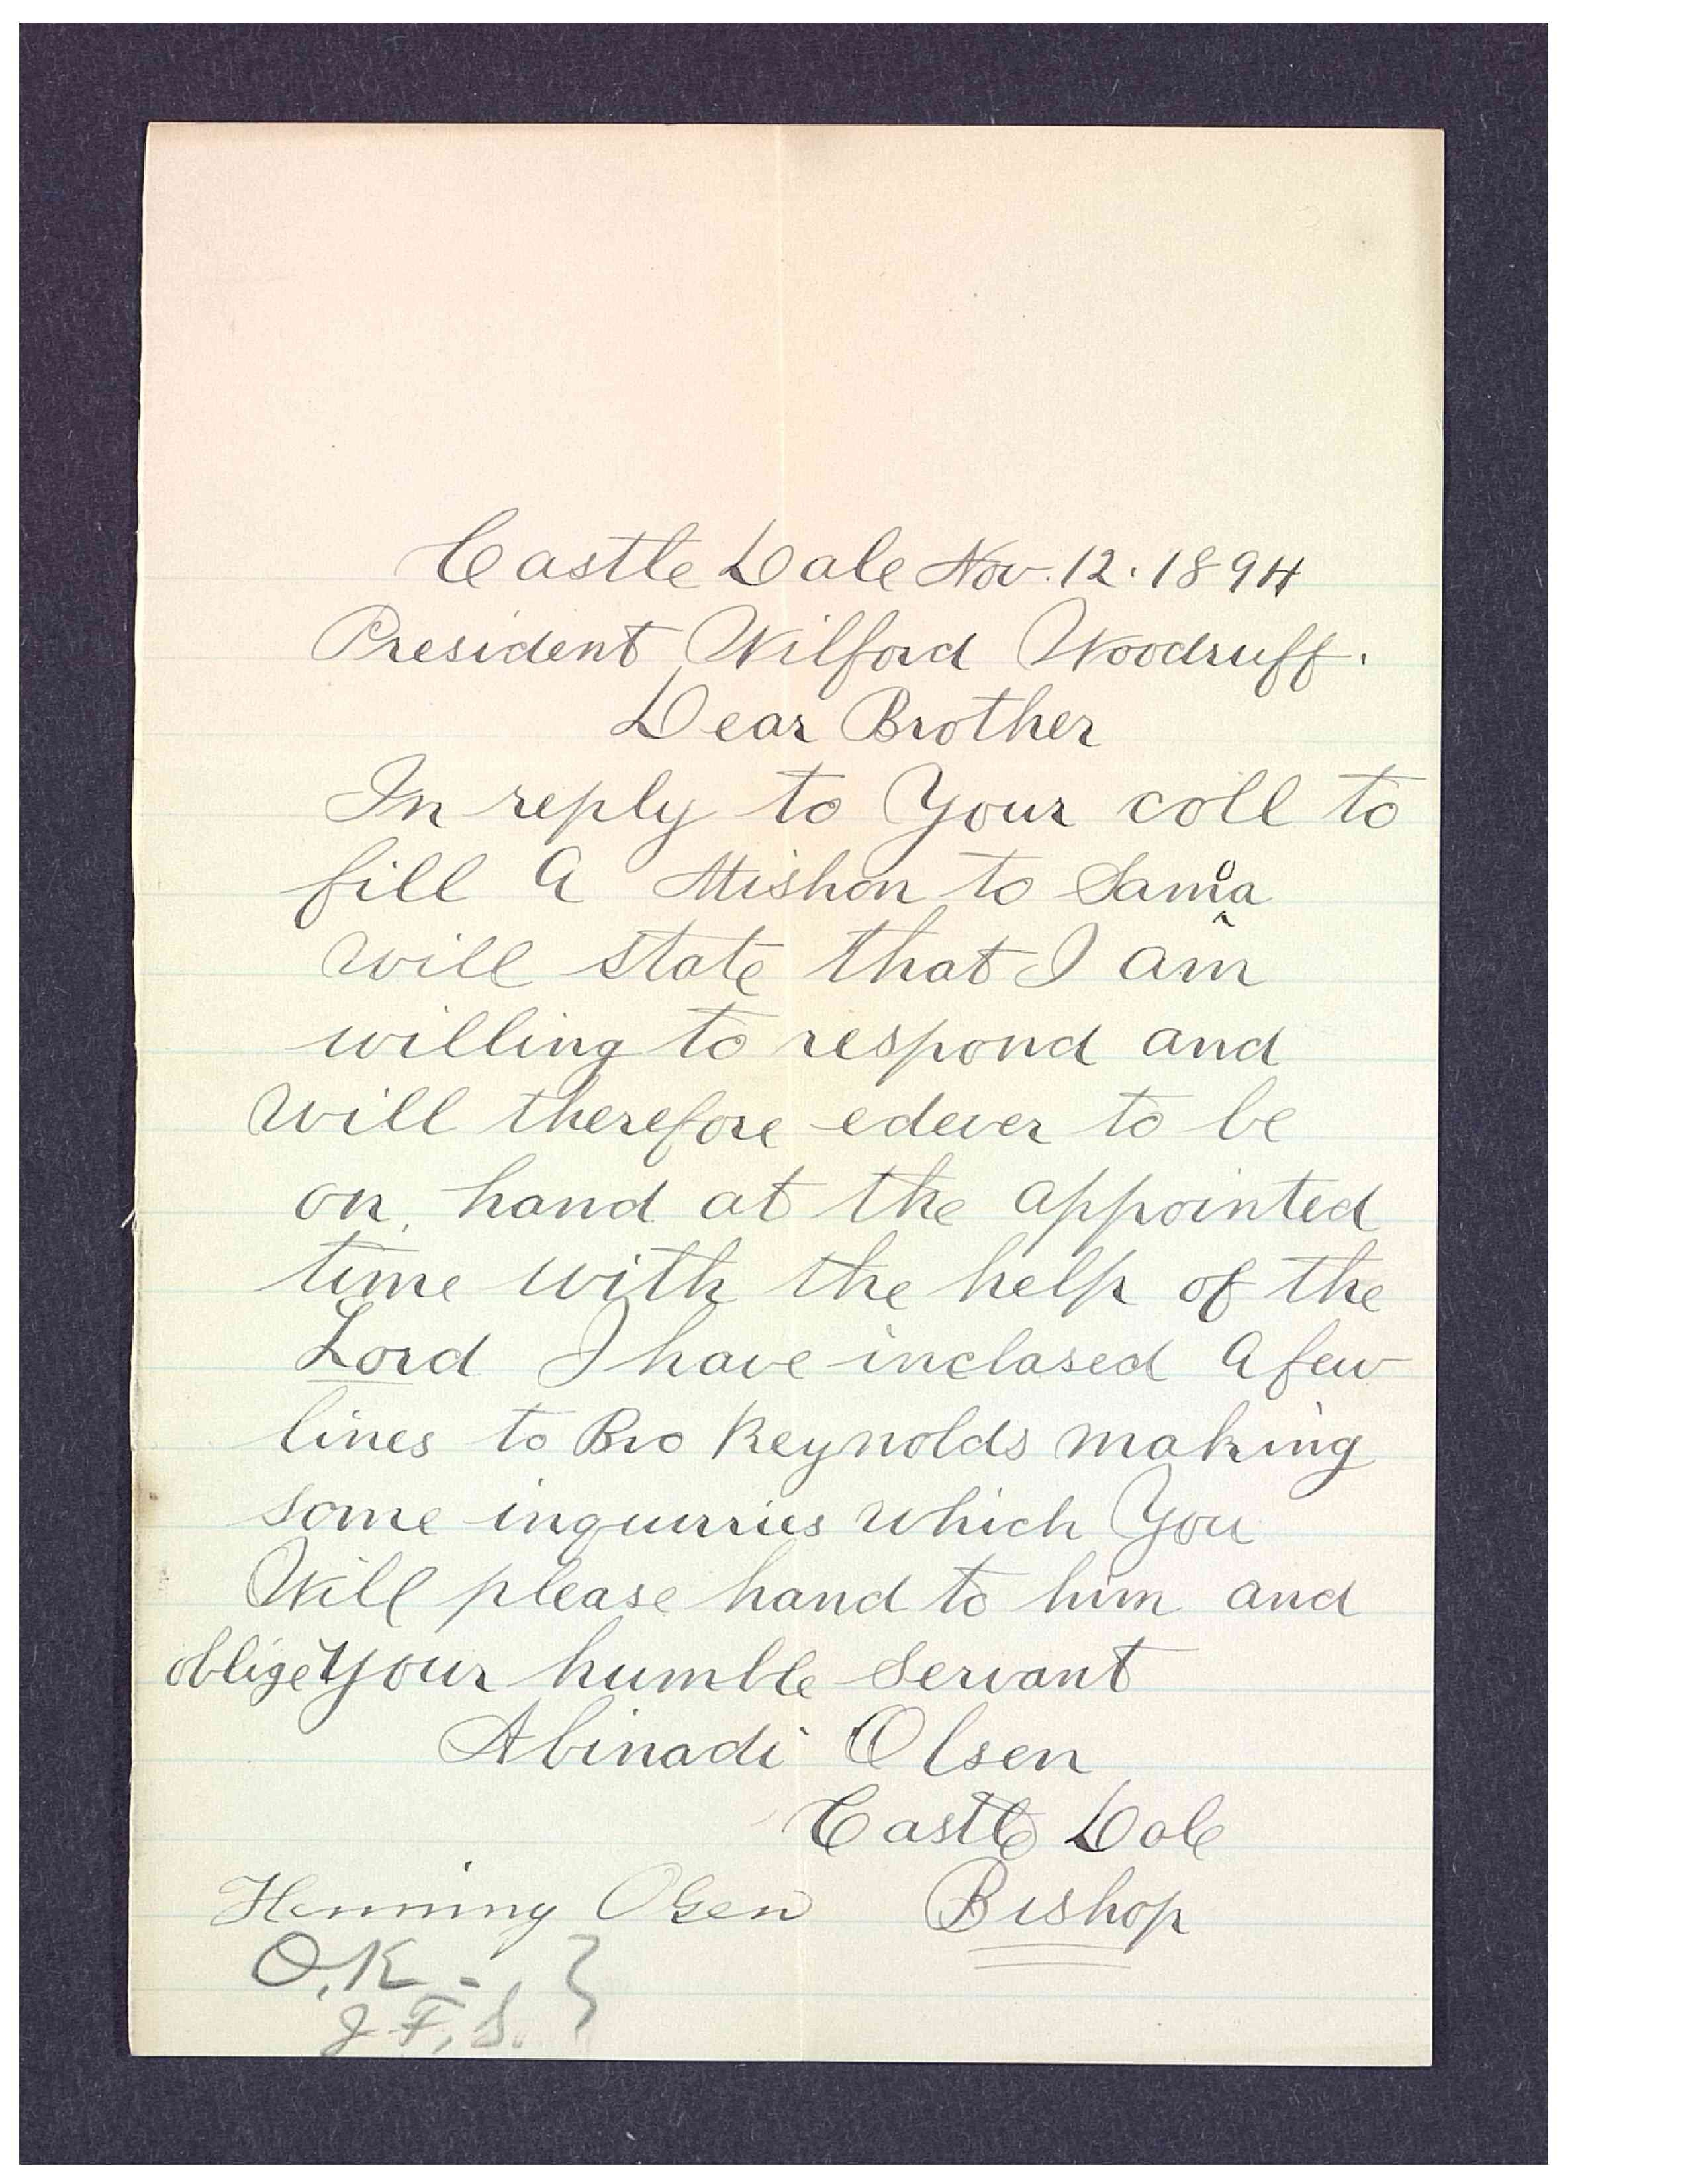 Castle Dale Nov. 12. 1894
President Wilford Woodruff.
Dear Brother
In reply to Your coll to
fill A Mishon to Samoa
will state that I am
willing to respond and
will therefore edever to be
on hand at the appointed
time with the help of the
Lord I have inclosed A few
lines to Bro Reynolds making
some inquirries which You
Will please hand to him and
oblige Your humble Servant
Abinadi Olsen
Castle Dale
Henning Olsen Bishop
O.K. - }
J. F. S.